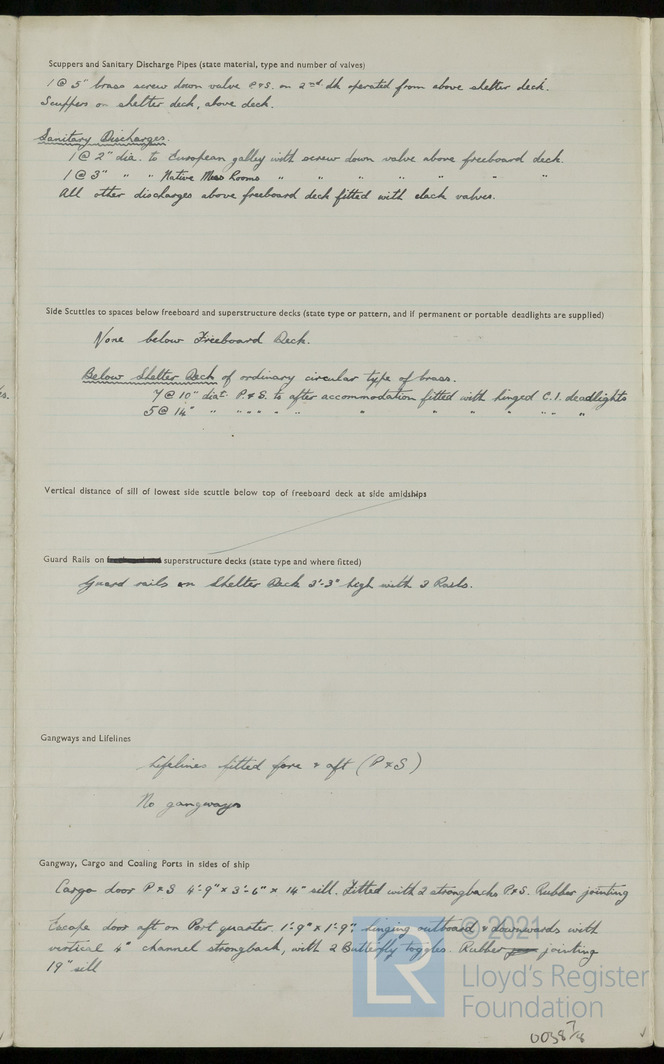 Scuppers and Sanitary Discharge Pipes (state material, type and number of valves)
1 @ 5" brass screw down valve P & S. on 2nd dk operated from above shelter deck.
Scuppers on shelter deck, above deck.
Sanitary Discharges.
1 @ 2" dia. to European galley with screw down valve above freeboard deck.
1 @ 3" " " Native Mess Rooms " " " " " " "
All other discharges above freeboard deck fitted with clack valves.
Side Scuttles to spaces below freeboard and superstructure decks (state type or pattern, and if permanent or portable deadlights are supplied)
None below Freeboard Deck.
Below Shelter Deck of ordinary circular type of brass.
7 @ 10" diar. P & S. to after accommodation fitted with hinged C.I. deadlights
5 @ 14" " " " " " " " " " " " " "
Vertical distance of sill of lowest side scuttle below top of freeboard deck at side amidships
Guard Rails on superstructure decks (state type and where fitted)
Guard rails on Shelter Deck 3'-3" high with 3 Rails.
Gangways and Lifelines
Lifelines fitted fore & aft (P & S)
No gangways
Gangway, Cargo and Coaling Ports in sides of ship
Cargo door P & S 4'-9" x 3'-6" x 14" sill. Fitted with 2 strongbacks P & S. Rubber jointing
Escape door aft on Port quarter. 1'-9" x 1'-9"; hinging outboard & downwards with
vertical 4" channel strongback, with 2 Butterfly toggles. Rubber jointing
19" sill
© 2021
LR
Lloyd's Register
Foundation